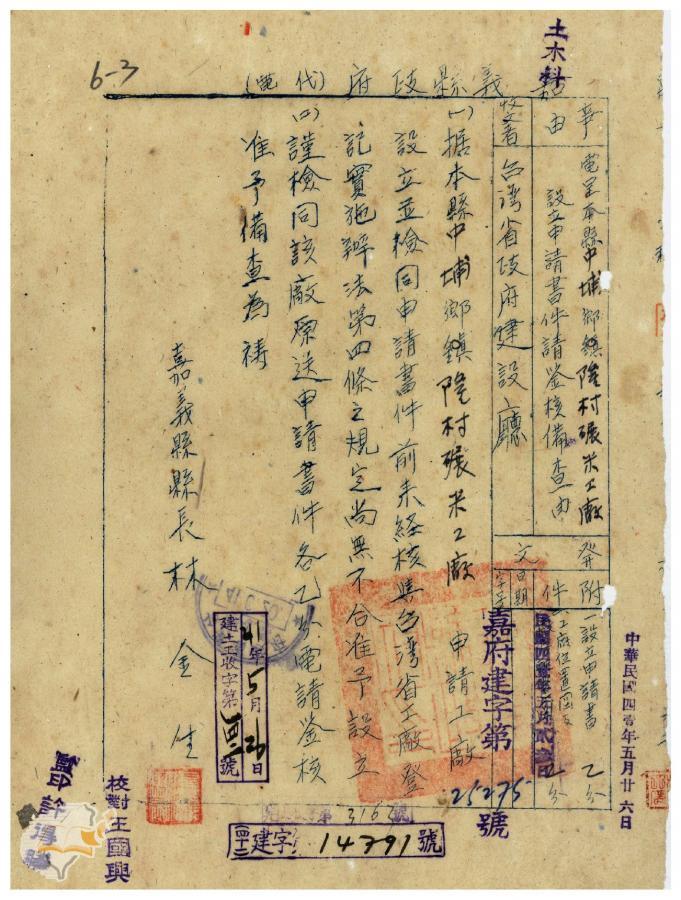 土木科
6-3
嘉義縣政府(代電)
事由
電呈本縣中埔鄉鎮隆村碾米工廠
設立申請書件請鑒核備查由
受文者
台灣省政府建設廳
發文
日期
字號
附件
一設立申請書 乙份
工廠位置圖 乙份
嘉府建字第
25275
號
中華民國四 年五月廿六日
(一)据本縣中埔鄉鎮隆村碾米工廠 申請工廠
設立並檢同申請書件前来経核與台灣省工廠登
記實施辦法第四條之規定尚無不合准予設立
(二)謹檢同該廠原送申請書件各乙份電請鑒核
准予備查為禱
嘉義縣縣長林金生
41年5月26日
建土工收字第 號
316 號
(四十一)建字 14791號
校對王國興